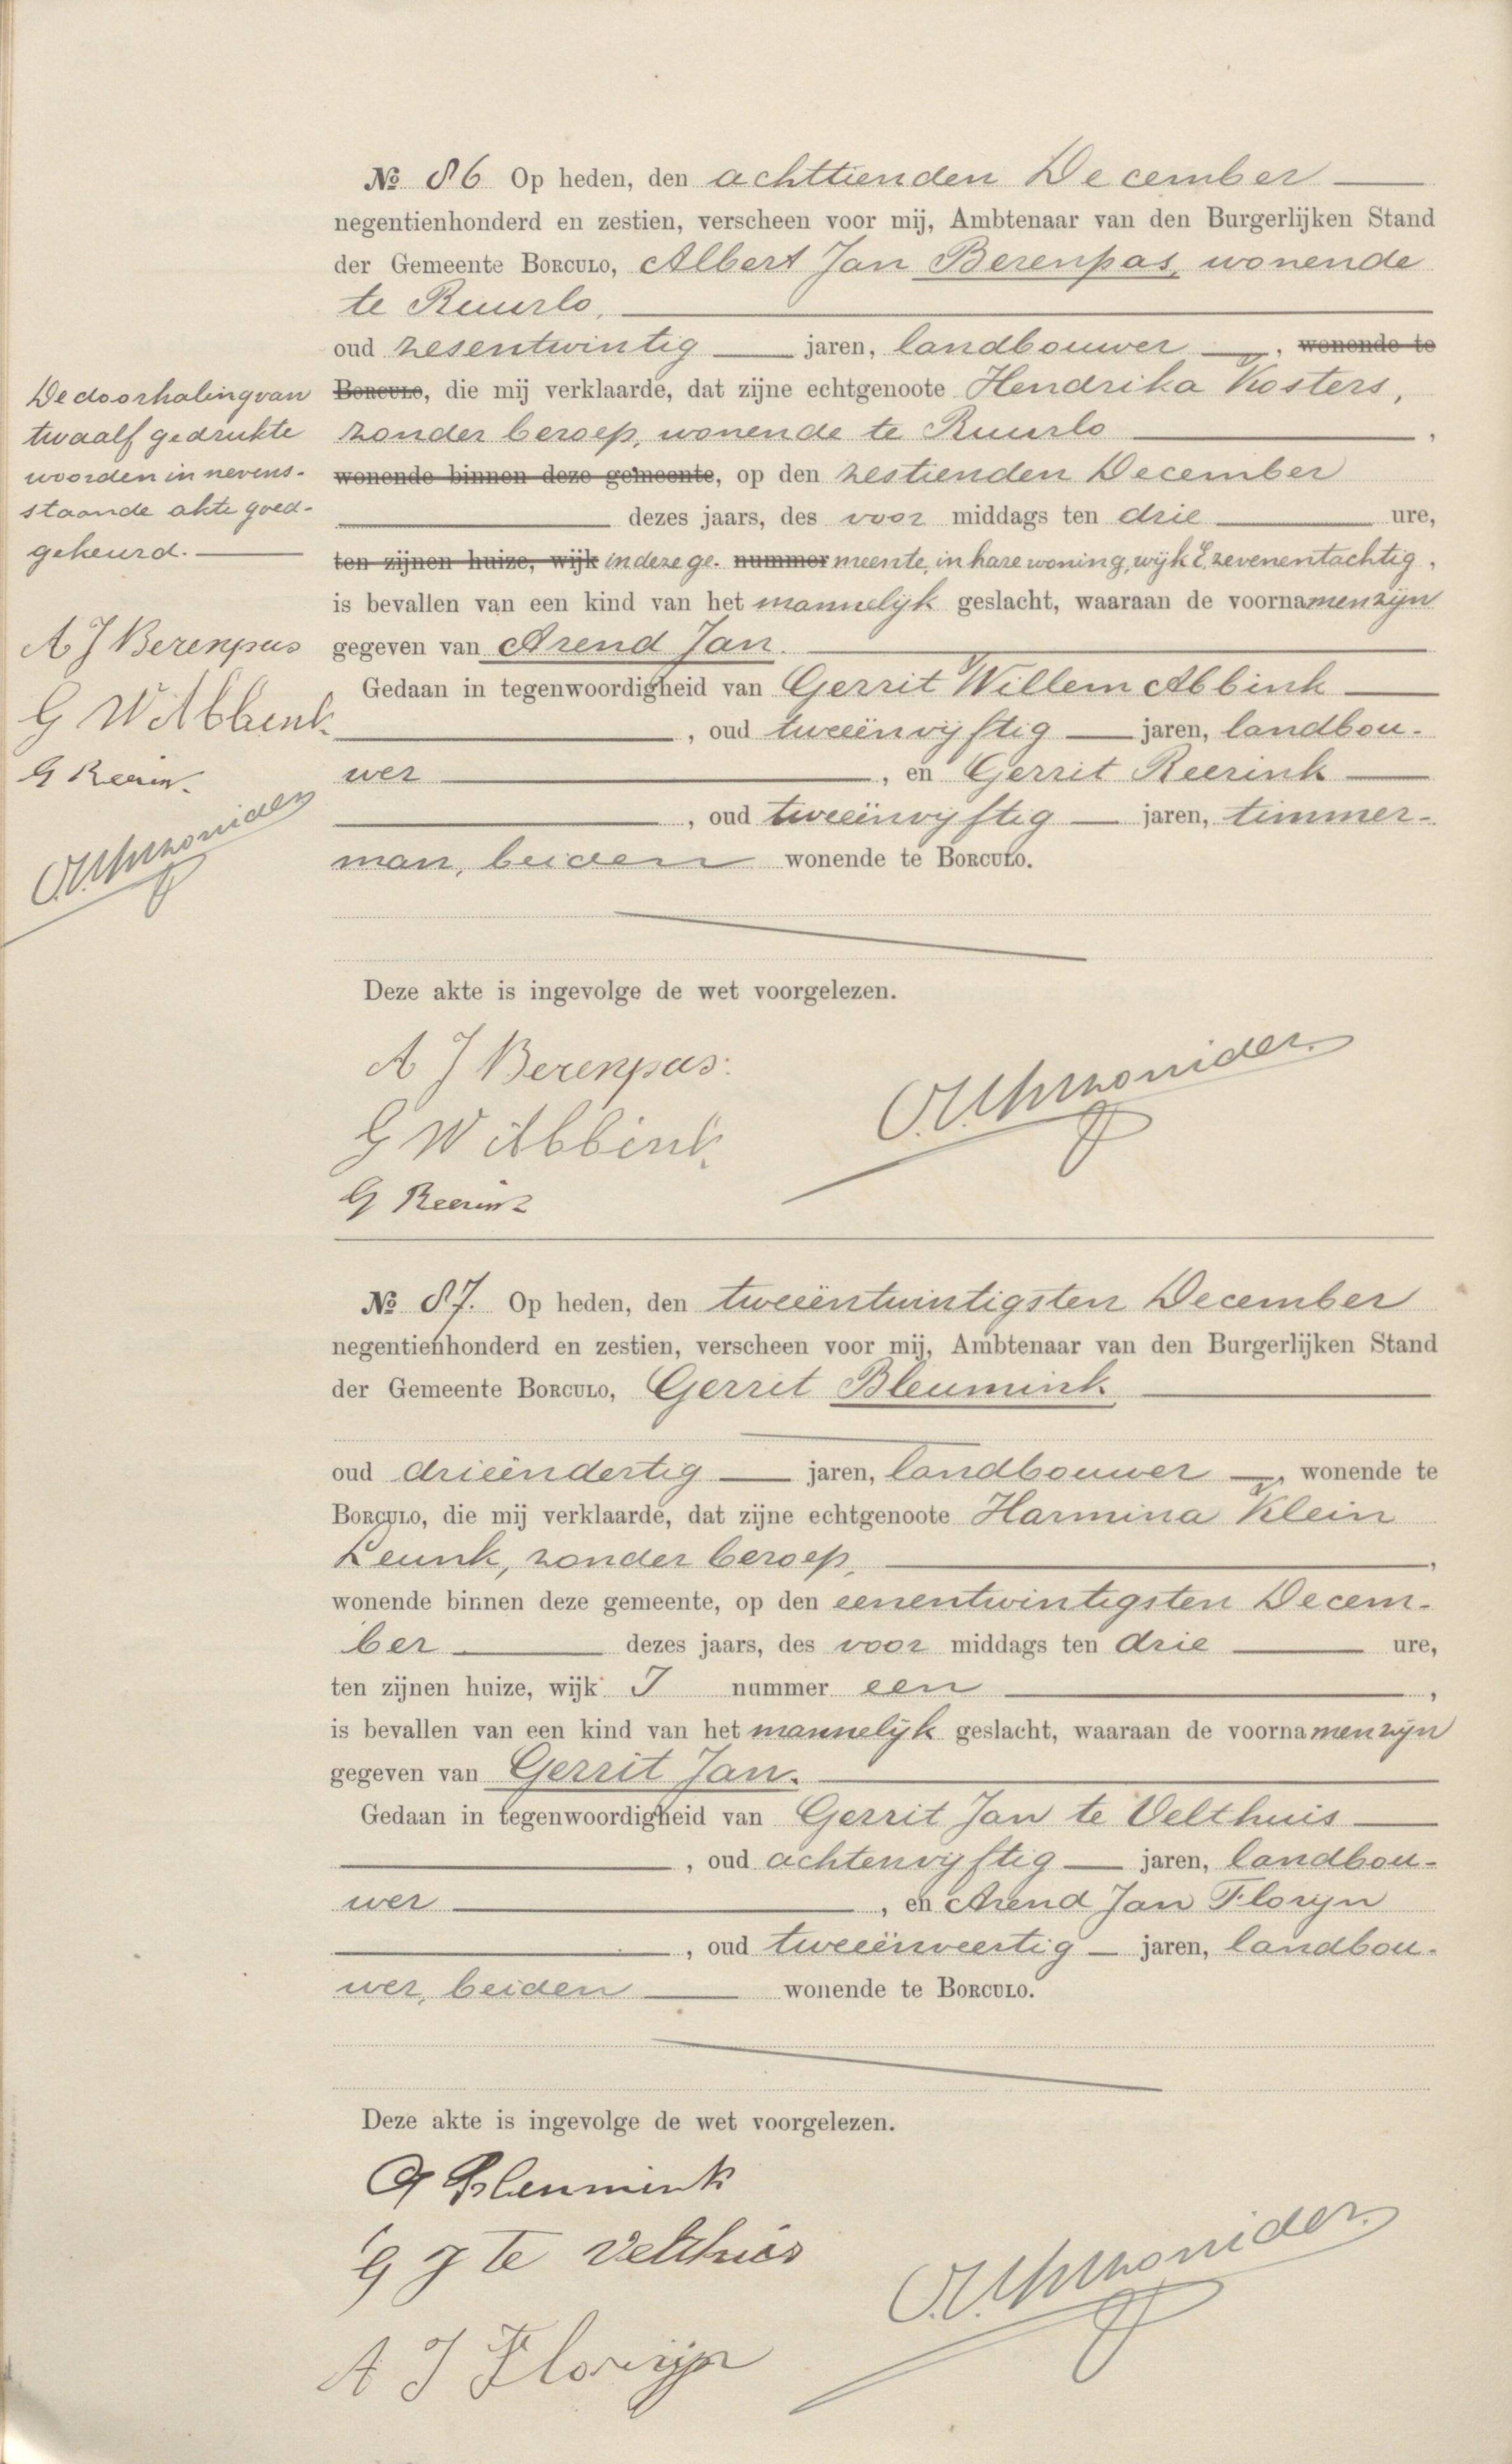 № 86 Op heden, den achttienden December
negentienhonderd en zestien, verscheen voor mij, Ambtenaar van den Burgerlijken Stand
der Gemeente Borculo, Albert Jan Berenpas, wonende
te Ruurlo,
oud zesentwintig jaren, landbouwer, wonende te
Borculo, die mij verklaarde, dat zijne echtgenoote Hendrika Kosters,
zonder beroep, wonende te Ruurlo,
wonende binnen deze gemeente, op den zestienden December
dezes jaars, des voor middags ten drie ure,
ten zijnen huize, wijk in deze ge- nummer meente, in hare woning, wijk E, zevenentachtig,
is bevallen van een kind van het mannelijk geslacht, waaraan de voornamen zijn
gegeven van Arend Jan.
Gedaan in tegenwoordigheid van Gerrit Willem Abbink
, oud tweeënvijftig jaren, landbou-
wer, en Gerrit Reerink
, oud tweeënvijftig jaren, timmer-
man, beiden wonende te Borculo.
De doorhaling van
twaalf gedrukte
woorden in nevens-
staande akte goed-
gekeurd.
A J Berenpas
G W Abbink
G Reerink
Deze akte is ingevolge de wet voorgelezen.
A J Berenpas.
G W Abbink
G Reerink
№ 87. Op heden, den tweeëntwintigsten December
negentienhonderd en zestien, verscheen voor mij, Ambtenaar van den Burgerlijken Stand
der Gemeente Borculo, Gerrit Bleumink
oud drieëndertig jaren, landbouwer, wonende te
Borculo, die mij verklaarde, dat zijne echtgenoote Harmina Klein
Leunk, zonder beroep,
wonende binnen deze gemeente, op den eenentwintigsten Decem-
ber dezes jaars, des voor middags ten drie ure,
ten zijnen huize, wijk J nummer een,
is bevallen van een kind van het mannelijk geslacht, waaraan de voornamen zijn
gegeven van Gerrit Jan.
Gedaan in tegenwoordigheid van Gerrit Jan te Velthuis
, oud achtenvijftig jaren, landbou-
wer, en Arend Jan Florijn
, oud tweeënveertig jaren, landbou-
wer, beiden wonende te Borculo.
Deze akte is ingevolge de wet voorgelezen.
G Bleumink
G J te Velthuis
A J Florijn